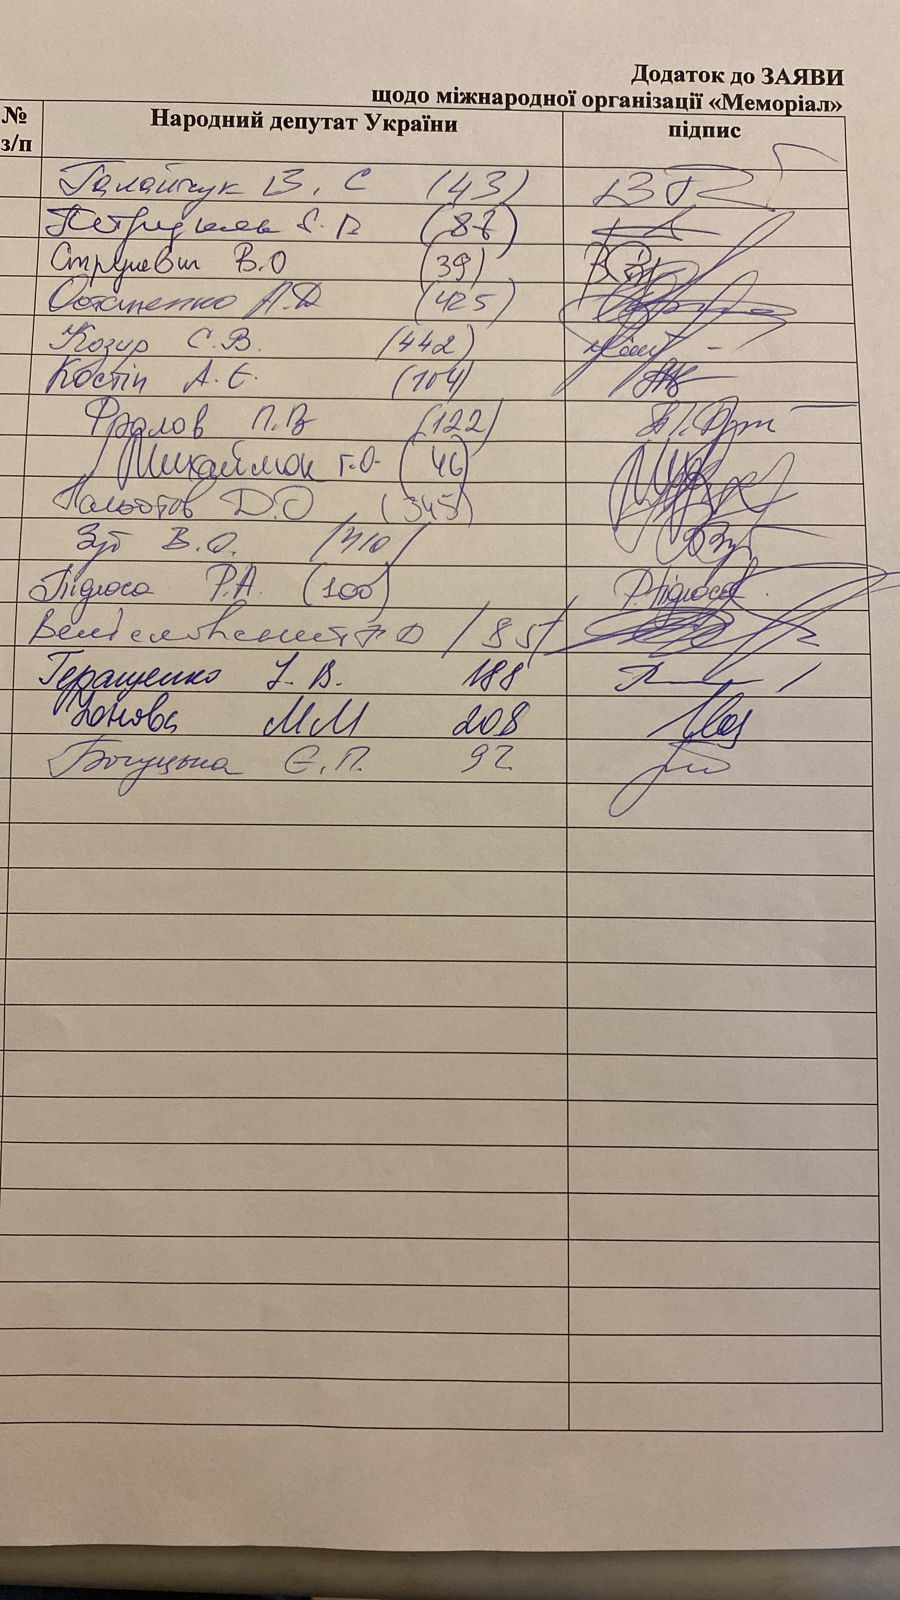 Додаток до ЗАЯВИ
щодо міжнародної організації «Меморіал»
№ з/п Народний депутат України підпис
Галайчук В. С (43)
(87)
В.О (39)
Остапенко А.Д (425)
Козир С.В. (442)
Костін А.Є. (104)
Фролов П.В (122)
Михайлюк Г.О. (46)
Нальотов Д.О (345)
Зуб В.О. /410/
Підласа Р.А. (100) Р.Підласа
/85/
Геращенко І. В. 188
Іонова ММ 208
Богуцька Є.П. 92